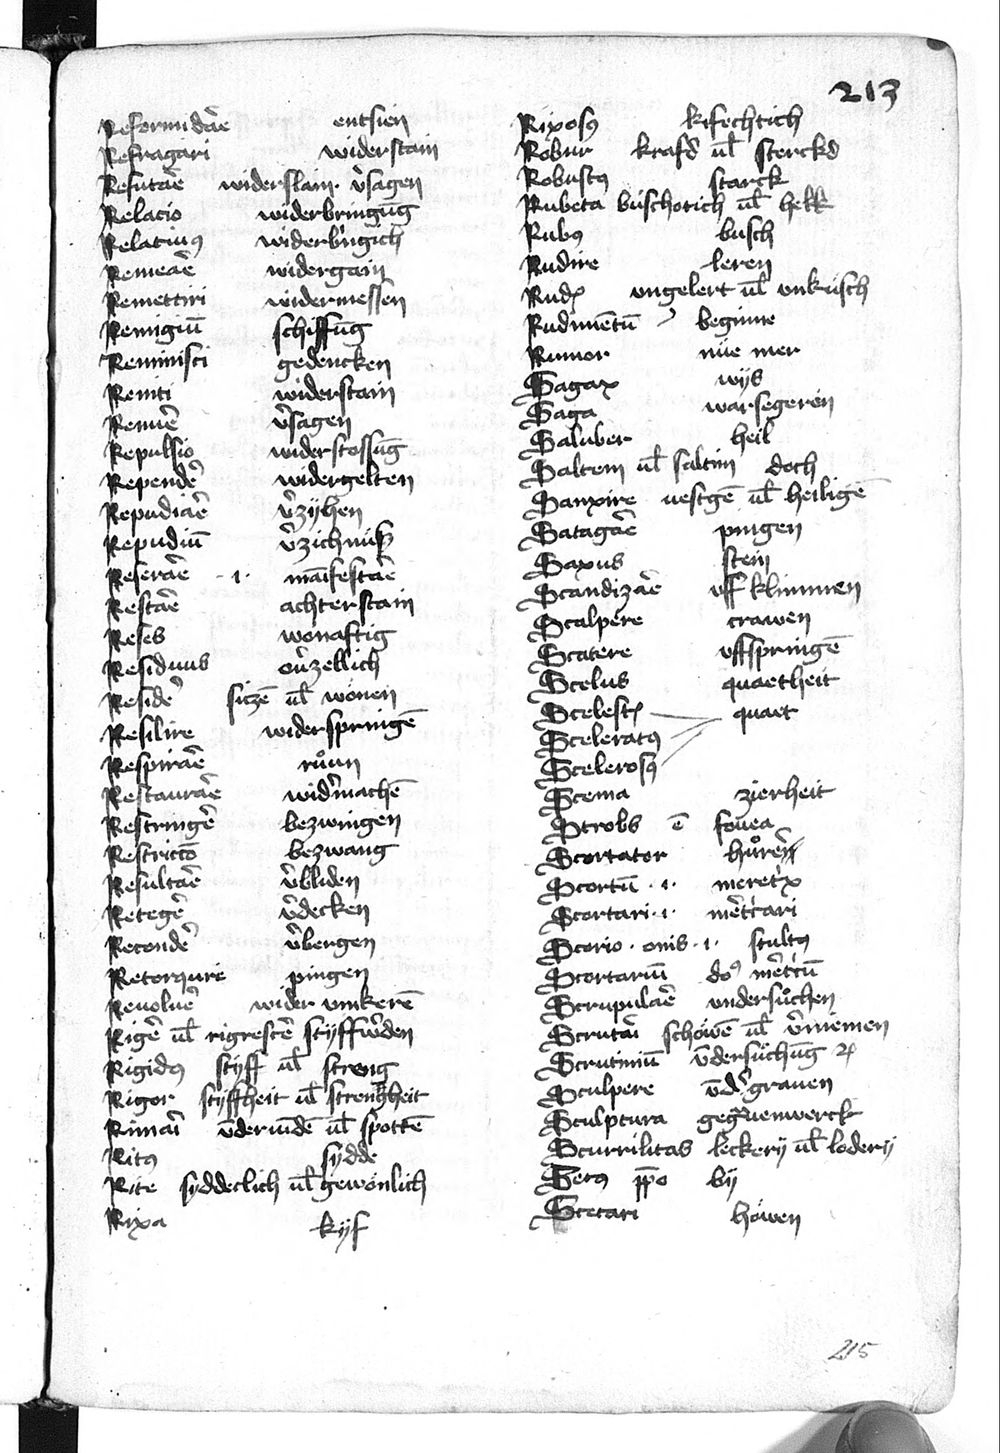 213
Reformidar̄e entsien
Refragari widerstain
Refutar̄e widerslain v̄sagen
Relacio widerbringūg
Relatiuꝯ widerbrīgich
Remear̄e widergain
Remettiri widermessen
Remigiū schiffūg
Reminisci gedencken
Reniti widerstain
Renuēr v̄sagen
Repulsio widerstossūg
Rependēr widergelten
Repudiar̄e v̄zijhen
Repudiū v̄zichniß
Reserar̄e ·i· māifestar̄e
Restar̄e achterstain
Reses wonaftig
Residuus ov̄zellich
Residēr sitzē ul̄ wonen
Resilire widerspringē
Respirar̄e růun
Restaurar̄e wid̄machē
Restringēr bezwingen
Restriccō bezwang
Resultar̄e v̄bliden
Retegēr v̄decken
Recondēr v̄bergen
Retorqure pingen
Reuoluēr wider vmkerē
Rigēr ul̄ rigrescēr stijffw̄den
Rigidꝯ stijff ul̄ streng
Rigor stijffheit ul̄ strengheit
Rimāi v̄dervīdē ul̄ spotte
Ritꝯ sydde
Rite syddeclich ul̄ gewonlich
Rixa kijf
Rixosꝯ kifechtich
Robur krafd ul̄ sterckd
Robustꝯ starck
Rubeta buschotich ul̄ hekk
Rubꝯ busch
Rudire leren
Rud' ongelert ul̄ onkusch
Rudimētū beginne
Rumor nüe mer
Sagax wijs
Saga warsegeren
Saluber heil
Saltem ul̄ saltim doch
Sanxire vestgē ul̄ heiligē
Satagar̄e pingen
Saxus stein
Scandizar̄e vff klimmen
Scalpere crawen
Scatere vffspringē
Scelus quaetheit
Scelest' quaet
Sceleratꝯ
Scelerosꝯ
Scema zierheit
Scrobs ē fouea
Scortator hůrer̄
Scortū ·i· meret̄x
Scortari ·i· mēt̄cari
Scorio · onis ·i· stultꝯ
Scortariū doꝯ mēt̄cū
Scrupular̄e vndersůchen
Scrutāi schöwē ul̄ v̄niemen
Scrutiniū v̄dersůchūg ꝛc
Sculpere v̄d̄grauen
Sculptura gegrauenwerck
Scurrilitas leckerij ul̄ loderij
Secꝯ ꝓpo bij
Sectari höwen
215